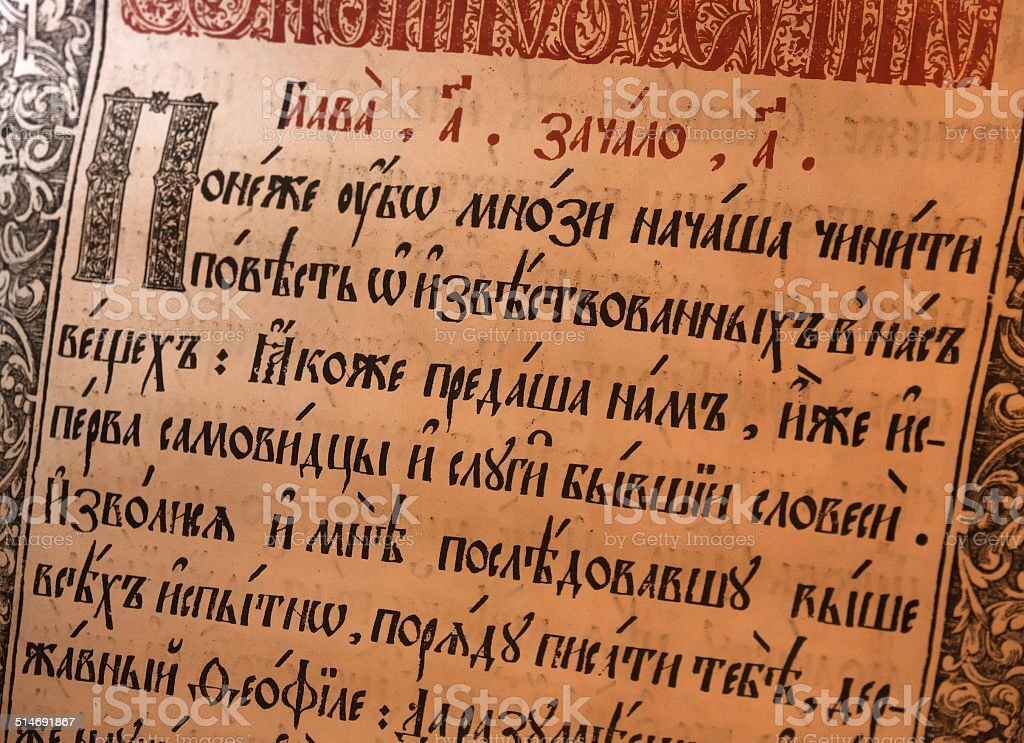 Глава̀, а҃. зача́ло, а҃.
Поне́же ᲂу҆́бѡ мно́зи нача́ша чини́ти
по́вѣсть ѡ҆ и҆звѣ́ствованныхъ в̾ на́съ
ве́щехъ: Ꙗ҆́коже преда́ша на́мъ, и҆̀же и҆с-
пе́рва самови́дцы и҆ слꙋги̑ бы́вшїи словесѝ.
И҆зво́лисѧ и҆ мнѣ̀ послѣ́довавшꙋ вы́ше
всѣ́хъ и҆спы́тнѡ, порѧ́дꙋ писа́ти тебѣ̀, дер-
жа́вный Ѳео́фїле: Да разꙋмѣ́еши
514691867
iStock
by Getty Images™